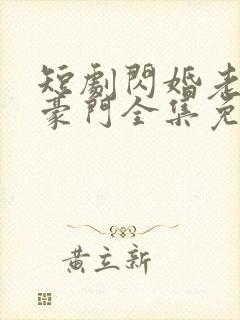 短劇閃婚老
豪門全集免
黃立新